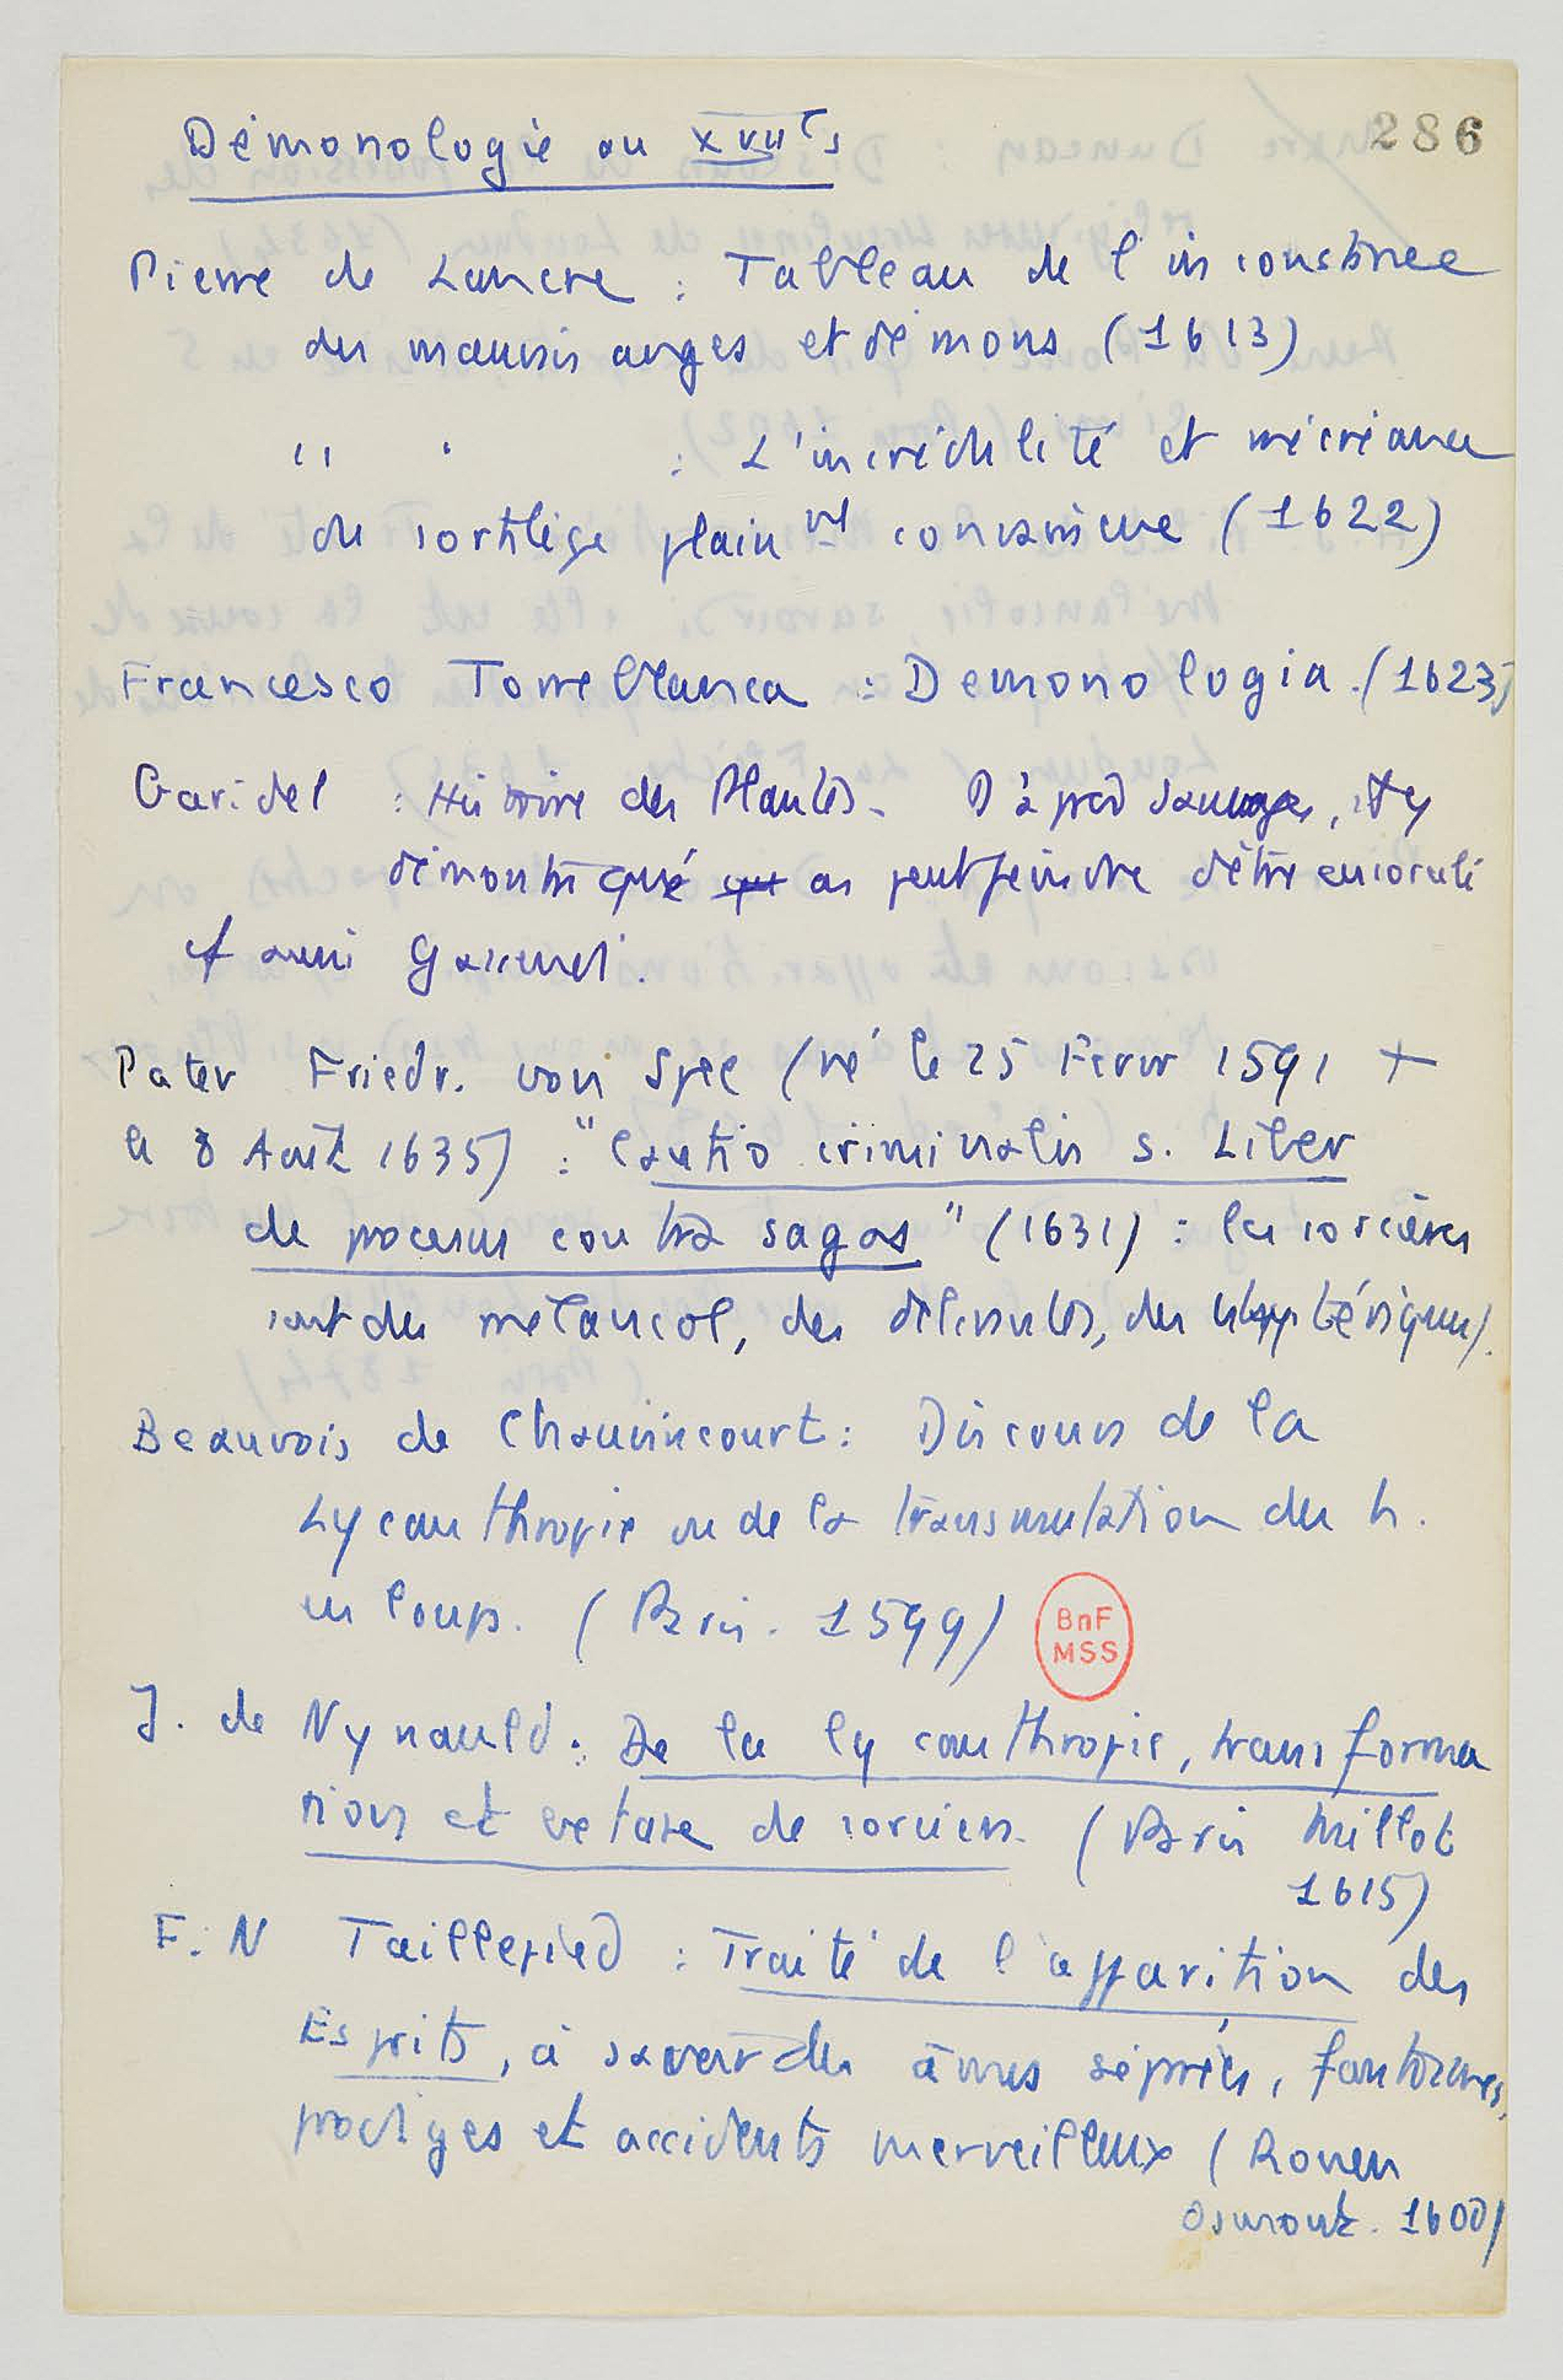 286
Démonologie au XVIIe s
Pierre de Lancre : Tableau de l'inconstance
des mauvais anges et démons (1613)
" " : L'incrédulité et mécréance
du sortilège plainemt convaincue (1622)
Francesco Torreblanca : Demonologia. (1623)
Garidel : Histoire des Plantes. D'après Sauvages, il y
démontre que on peut feindre d'être ensorcelé
cf aussi Gassendi.
Pater Friedr. von Spee (né le 25 Fevrier 1591 +
le 8 Août 1635) : "Cautio criminalis s. Liber
de processus contra sagas" (1631) : les sorcières
sont des mélancol, des délirantes, des hystériques).
Beauvois de Chauvincourt : Discours de la
Lycanthropie ou de la transmutation des h.
en loups. (Paris. 1599)
BnF
MSS
J. de Nynauld : De la lycanthropie, transforma
tion et extase de sorciers. (Paris Millot
1615)
F. N Taillepied : Traité de l'apparition des
Esprits, à savoir des âmes séparées, fantosmes,
prodiges et accidents merveilleux (Rouen
1600)